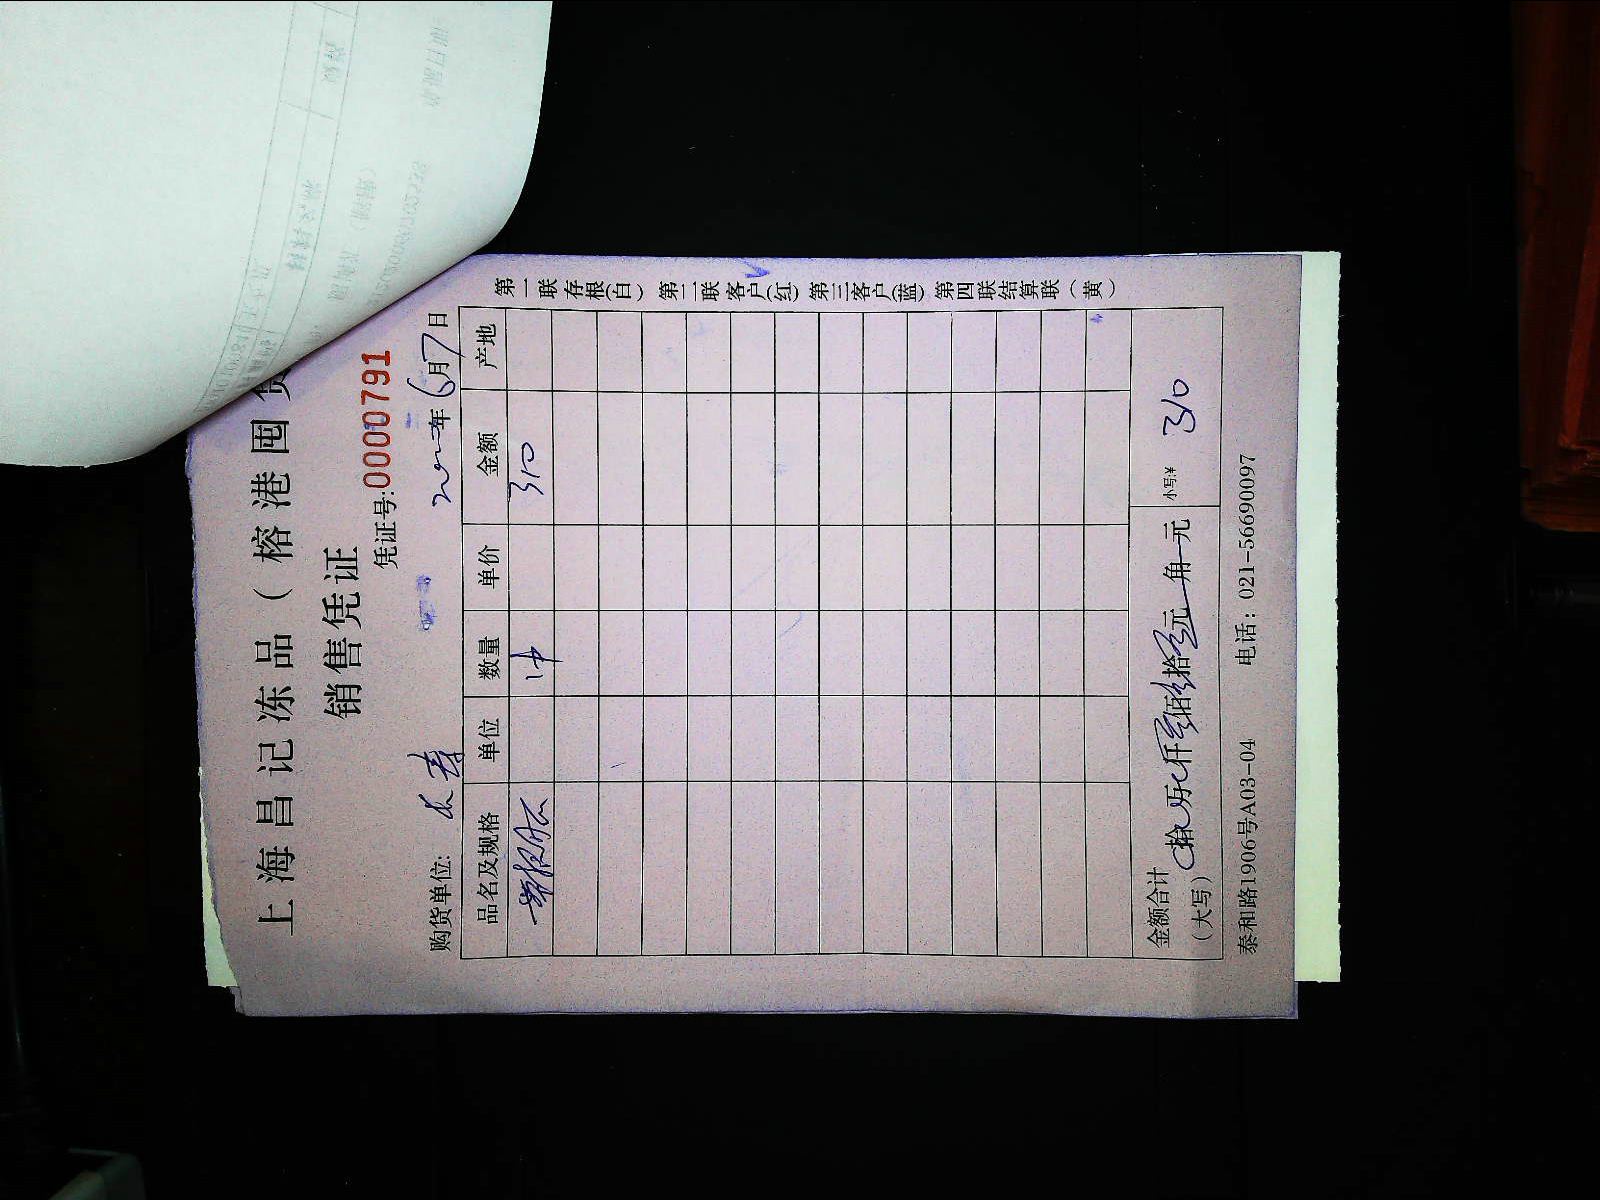 上海昌记冻品（榕港囤货
销售凭证
凭证号:0000791
购货单位: 长寿 年6月7日
品名及规格 单位 数量 单价 金额 产地
1件 310
金额合计（大写） 拾 万 仟叁佰 拾 元 角 元 小写¥ 310
泰和路1906号A03-04 电话：021-56690097
第一联存根(白) 第二联客户(红) 第三客户(蓝) 第四联结算联（黄）